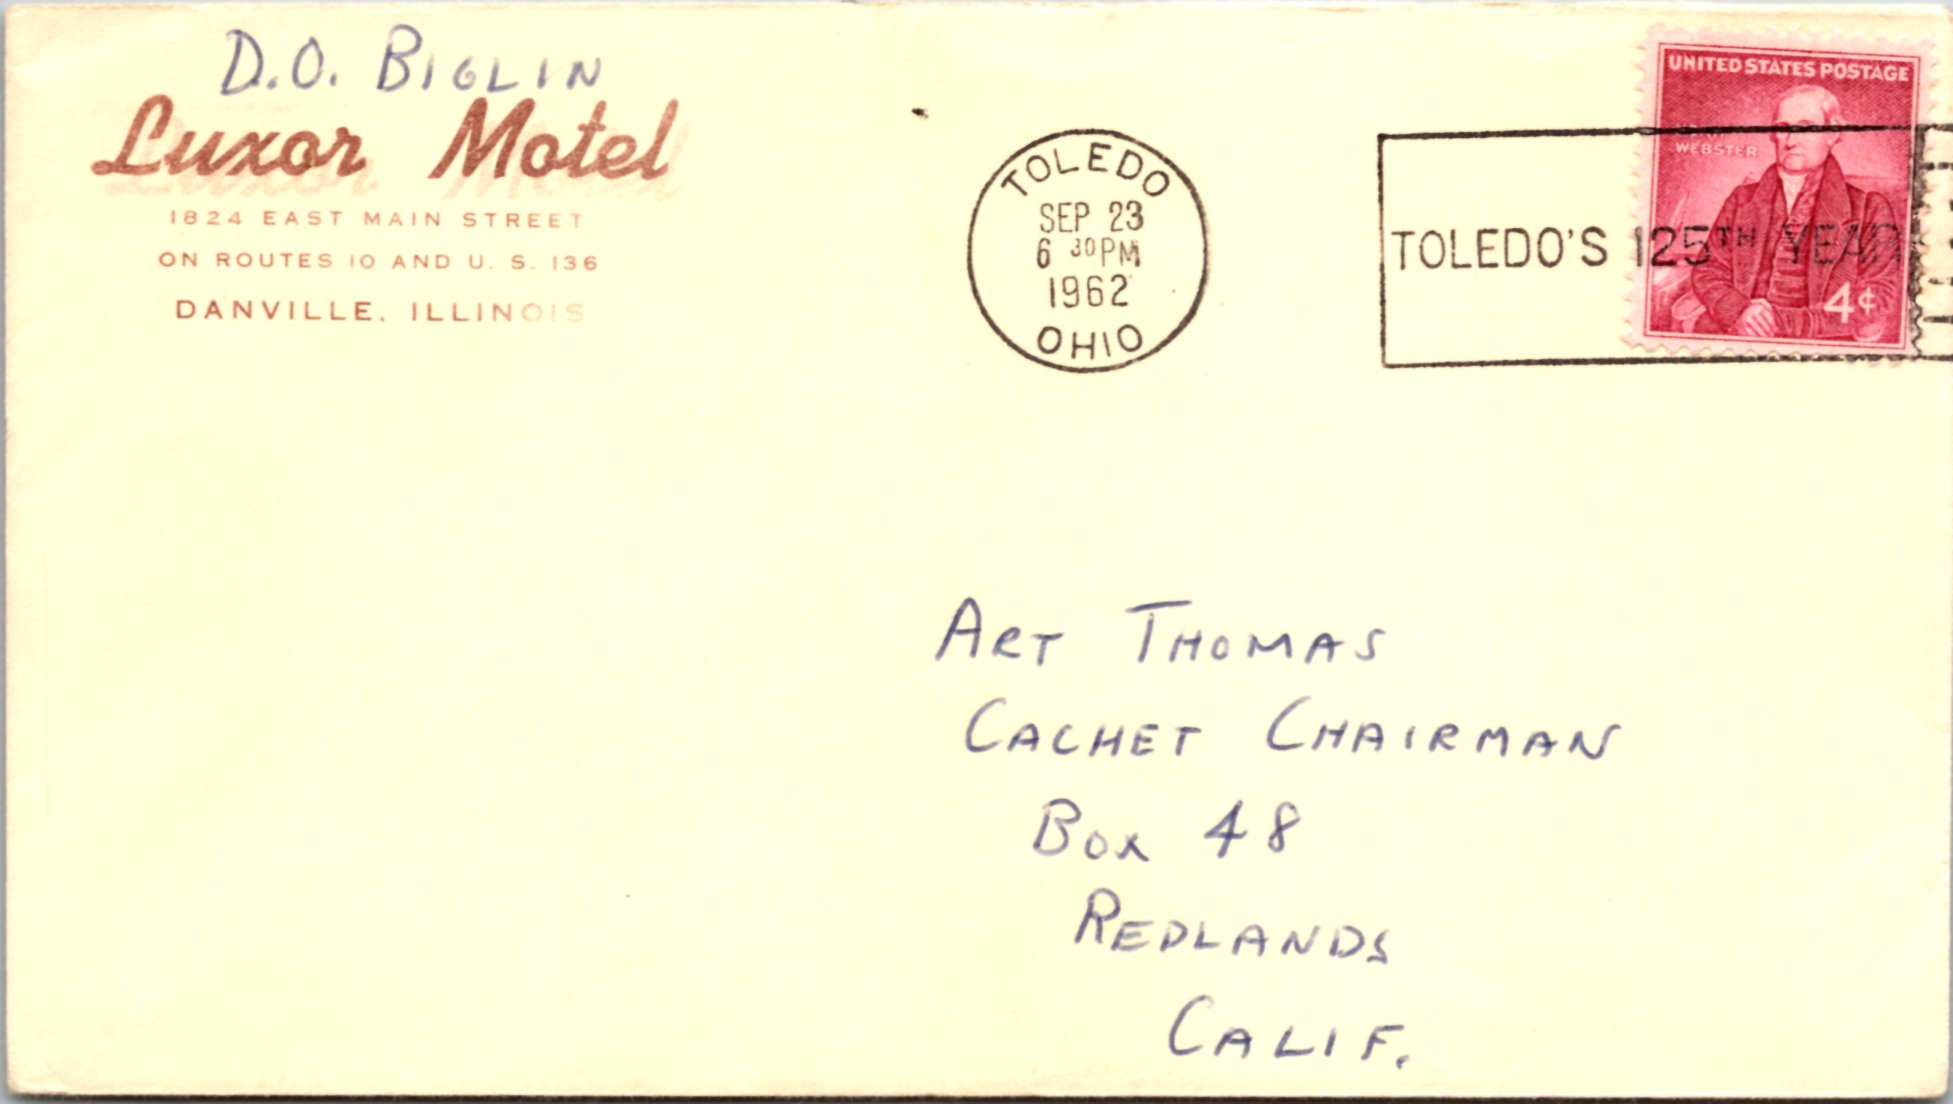 D.O. BIGLIN
Luxor Motel
1824 EAST MAIN STREET
ON ROUTES 10 AND U. S. 136
DANVILLE, ILLINOIS
TOLEDO
SEP 23
6 30 PM
1962
OHIO
TOLEDO'S 125TH YEAR
UNITED STATES POSTAGE
WEBSTER
4¢
ART THOMAS
CACHET CHAIRMAN
BOX 48
REDLANDS
CALIF.